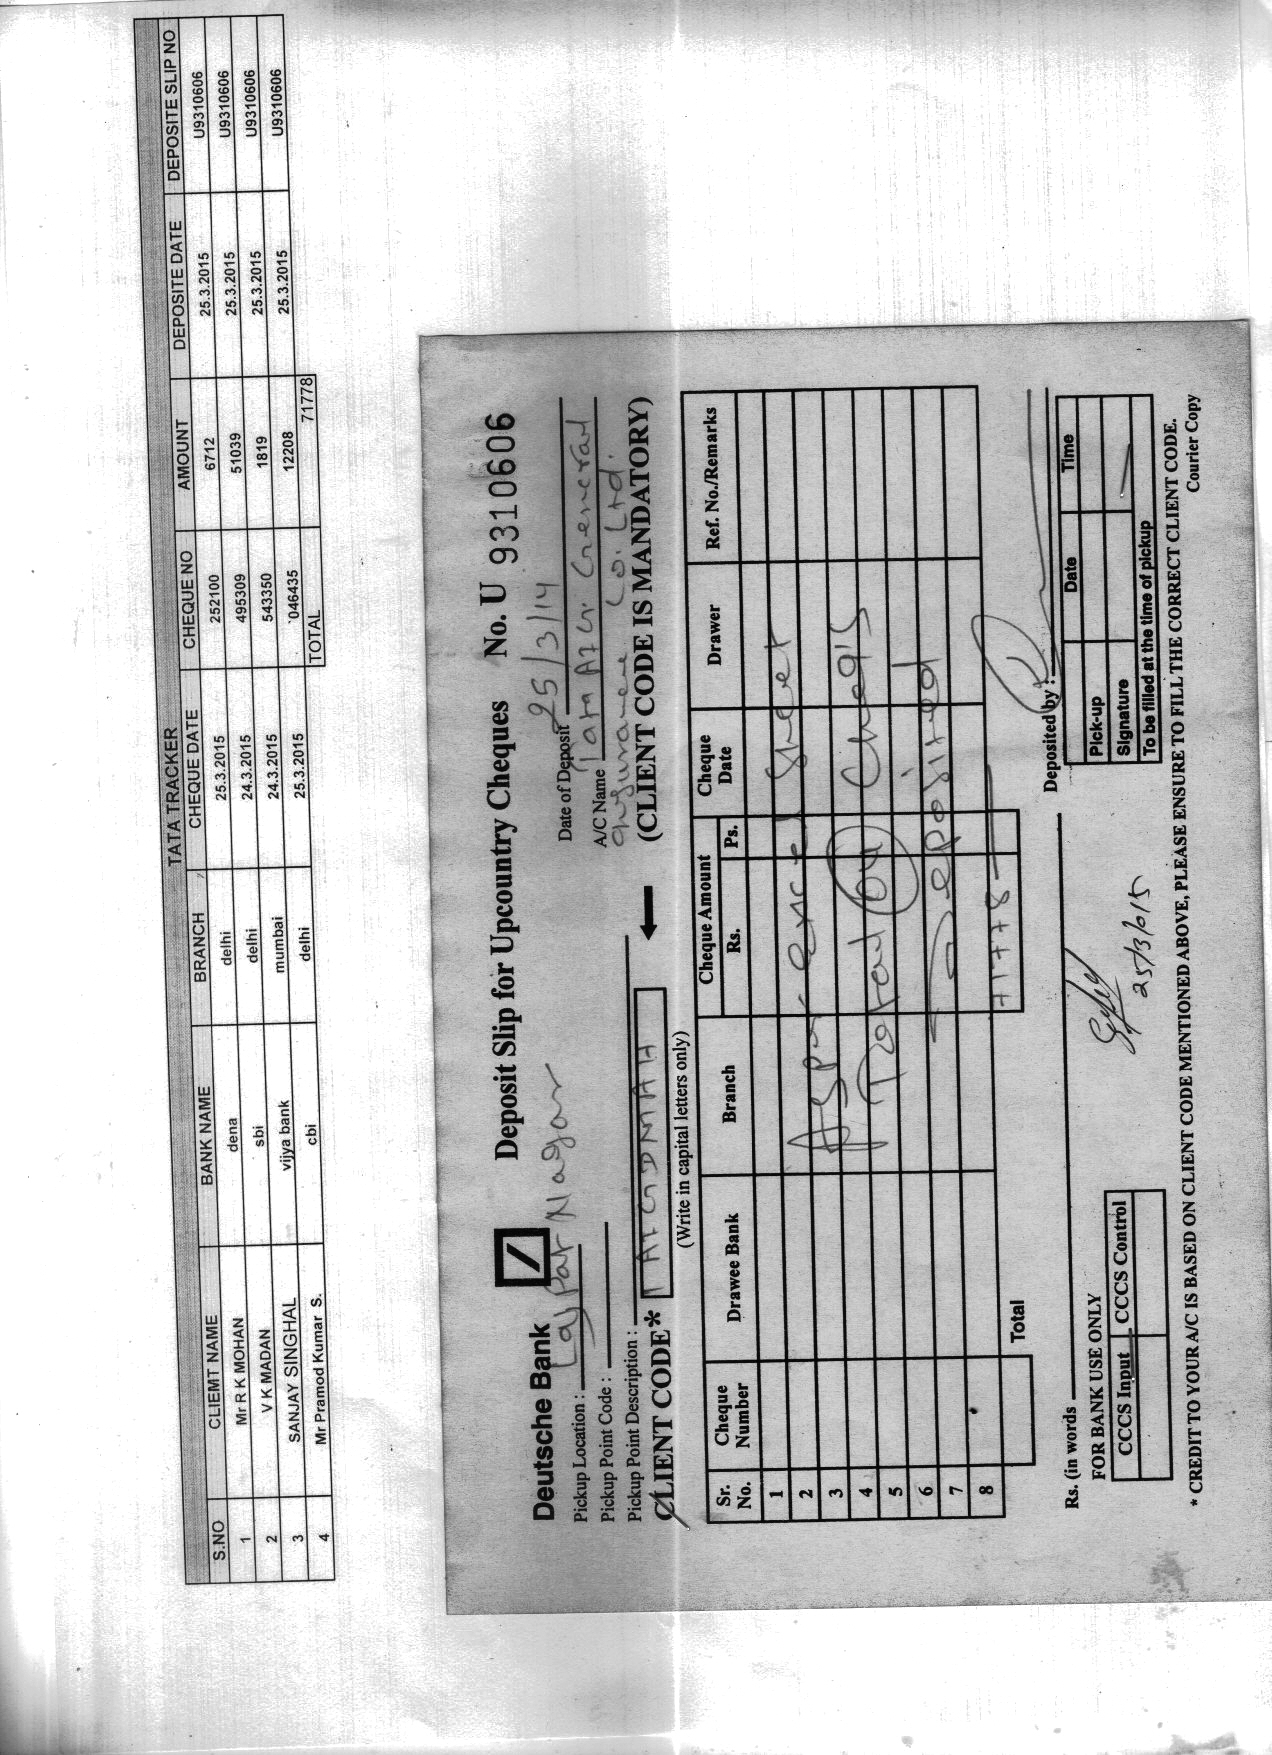 TATA TRACKER
S.NO CLIEMT NAME BANK NAME BRANCH CHEQUE DATE CHEQUE NO AMOUNT DEPOSITE DATE DEPOSITE SLIP NO
1 Mr R K MOHAN dena delhi 25.3.2015 252100 6712 25.3.2015 U9310606
2 V K MADAN sbi delhi 24.3.2015 495309 51039 25.3.2015 U9310606
3 SANJAY SINGHAL vijya bank mumbai 24.3.2015 543350 1819 25.3.2015 U9310606
4 Mr Pramod Kumar S. cbi delhi 25.3.2015 046435 12208 25.3.2015 U9310606
TOTAL 71778
Deutsche Bank Deposit Slip for Upcountry Cheques No. U 9310606
Pickup Location : Lajpat Nagar Date of Deposit 25/3/14
Pickup Point Code : A/C Name Tata AIG General
Pickup Point Description : Insurance Co. Ltd.
CLIENT CODE* TAIGDMAH (CLIENT CODE IS MANDATORY)
(Write in capital letters only)
Sr. No. Cheque Number Drawee Bank Branch Cheque Amount Rs. Ps. Cheque Date Drawer Ref. No./Remarks
1
2 As per sheet
3
4 Total 04 Cheq's
5
6 Deposited
7
8
Total 71778
Rs. (in words Deposited by :
FOR BANK USE ONLY
CCCS Input CCCS Control
25/3/015
Pick-up Date Time
Signature
To be filled at the time of pickup
* CREDIT TO YOUR A/C IS BASED ON CLIENT CODE MENTIONED ABOVE, PLEASE ENSURE TO FILL THE CORRECT CLIENT CODE.
Courier Copy